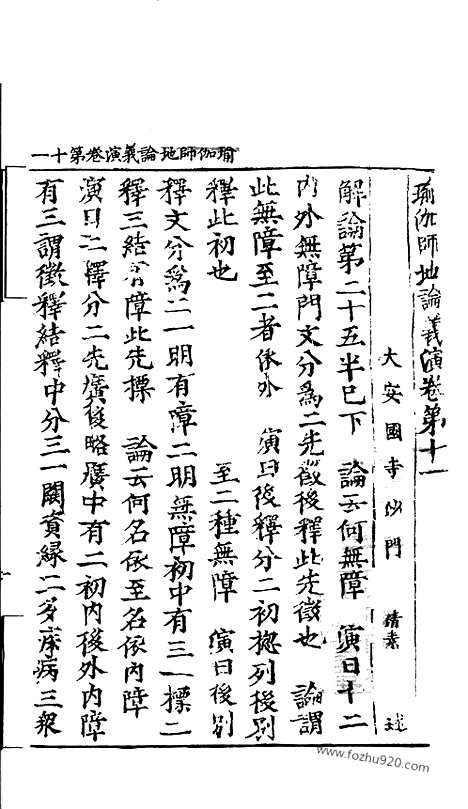 瑜伽師地論義演卷第十一
瑜伽師地論義演卷第十一
大安國寺沙門 清素 述
解論第二十五半已下 論云何無障 演曰十二
內外無障門文分為二先徵後釋此先徵也 論謂
此無障至二者依外 演曰後釋分二初揔列後別
釋此初也 至二種無障 演曰後別
釋文分為二一明有障二明無障初中有三一標二
釋三結有障此先標 論云何名依至名依內障
演曰二釋分二先廣後略廣中有二初內後外內障
有三謂徵釋結釋中分三一闕資緣二多疾病三衆
www.fozhu920.com